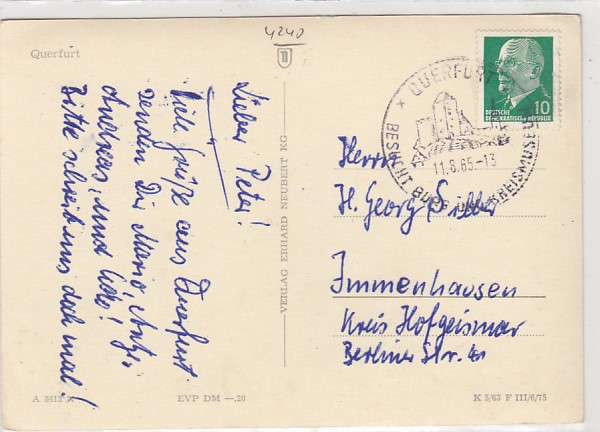 Querfurt
4240
Lieber Peter!
Viele Grüße aus Querfurt
senden Dir Mario,
Andreas, und
Bitte schreib uns doch mal!
VERLAG ERHARD NEUBERT KG
QUERFURT
BESUCHT BURG UND KREISMUSEUM
11.8.65.-13
DEUTSCHE
DEMOKRATISCHE REPUBLIK
10
Herrn
H. Georg
Immenhausen
Kreis Hofgeismar
Berliner Str.
EVP DM —,20
K 5/63 F III/6/75